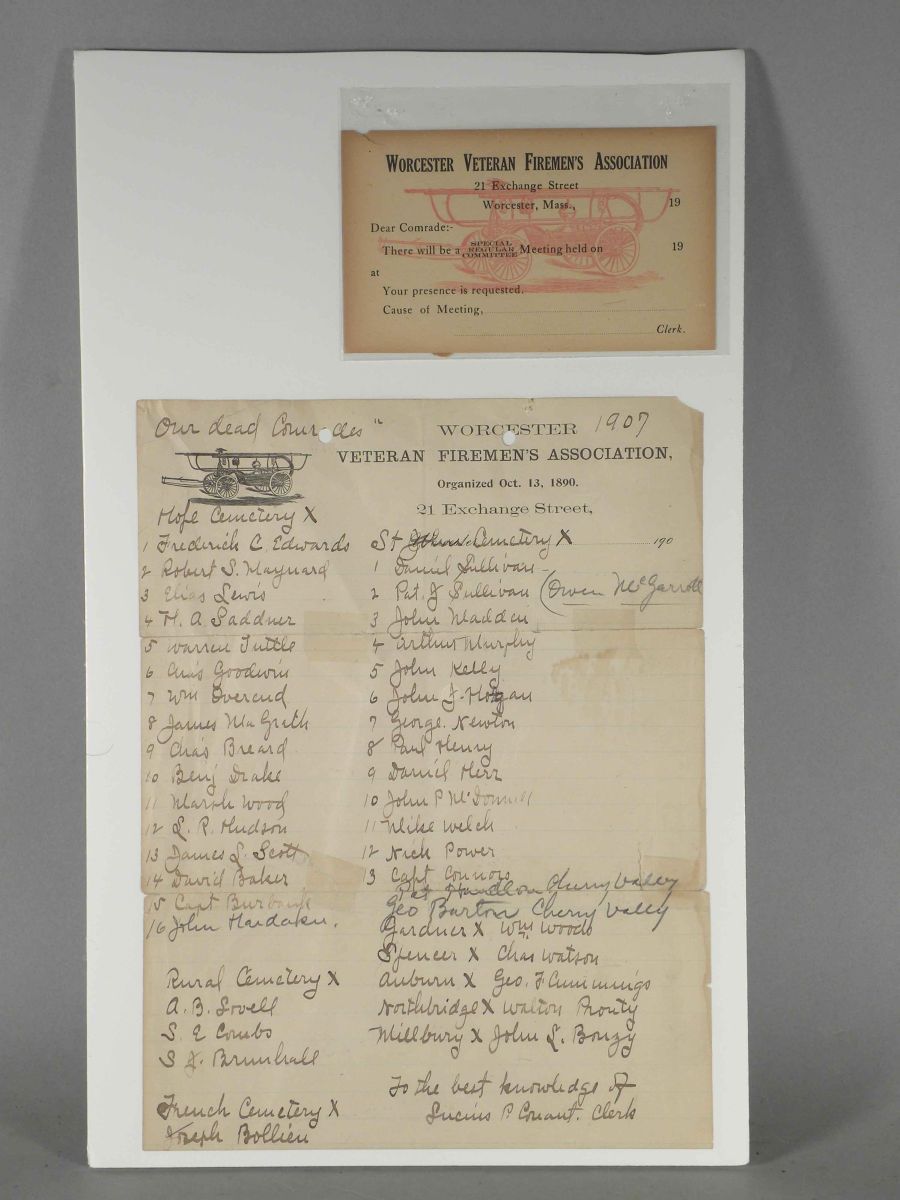 WORCESTER VETERAN FIREMEN'S ASSOCIATION
21 Exchange Street
Worcester, Mass., 19
Dear Comrade:-
There will be a SPECIAL REGULAR COMMITTEE Meeting held on 19
at
Your presence is requested.
Cause of Meeting,
Clerk.
Our dead Comrades"
WORCESTER 1907
VETERAN FIREMEN'S ASSOCIATION,
Organized Oct. 13, 1890.
21 Exchange Street,
190
Hope Cemetery X
1 Frederich C. Edwards
2 Robert S. Maynard
3 Elias Lewis
4 H. A. Saddner
5 Warren Tuttle
6 Chas Goodwin
7 Wm Overend
8 James McGrath
9 Chas Breard
10 Benj Drake
11 Marsh Wood
12 L. R. Hudson
13 James L. Scott
14 David Baker
15 Capt Burbank
16 John
Rural Cemetery X
A. B. Lovell
S. E Combs
S J. Brumhall
French Cemetery X
Joseph Bollieu
St Johns Cemetery X
1 Daniel Sullivan
2 Pat. J Sullivan (Owen McGarroll
3 John Madden
4 Arthur Murphy
5 John Kelly
6 John J. Hogan
7 George. Newton
8 Paul Henry
9 Daniel Herr
10 John P McDonnell
11 Mike Welch
12 Nick Power
13 Capt Connors
Pat Handlon Cherry Valley
Geo Barton Cherry Valley
Gardner X Wm Woods
Spencer X Chas Watson
Auburn X Geo. F. Cummings
Northbridge X Walton Prouty
Millbury X John L. Bonzy
To the best knowledge of
Lucius P Conant. Clerk